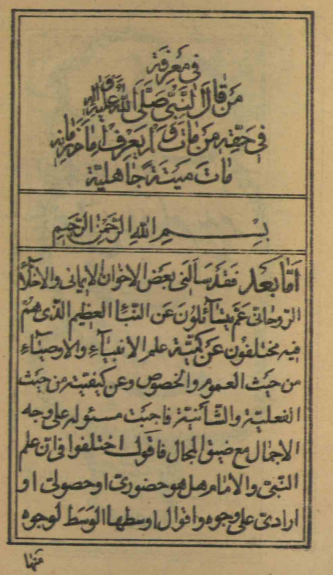 فی معرفة
من قال النبی صلی الله علیه و آله
فی حقه من مات و لم یعرف امام زمانه
مات میتة جاهلیة
بسم الله الرحمن الرحیم
اما بعد فقد سالنی بعض الاخوان الایمانی و الاخلاء
الروحانی عم یتسائلون عن النبأ العظیم الذی هم
فیه مختلفون عن کمیة علم الانبیاء و الاوصیاء
من حیث العموم و الخصوص و عن کیفیته من حیث
الفعلیة و الشأنیة فاجبت مسئوله علی وجه
الاجمال مع ضیق المجال فاقول اختلفوا فی ان علم
النبی و الامام هل هو حضوری او حصولی او
ارادی علی وجوه و اقوال اوسطها الوسط لوجوه
منها